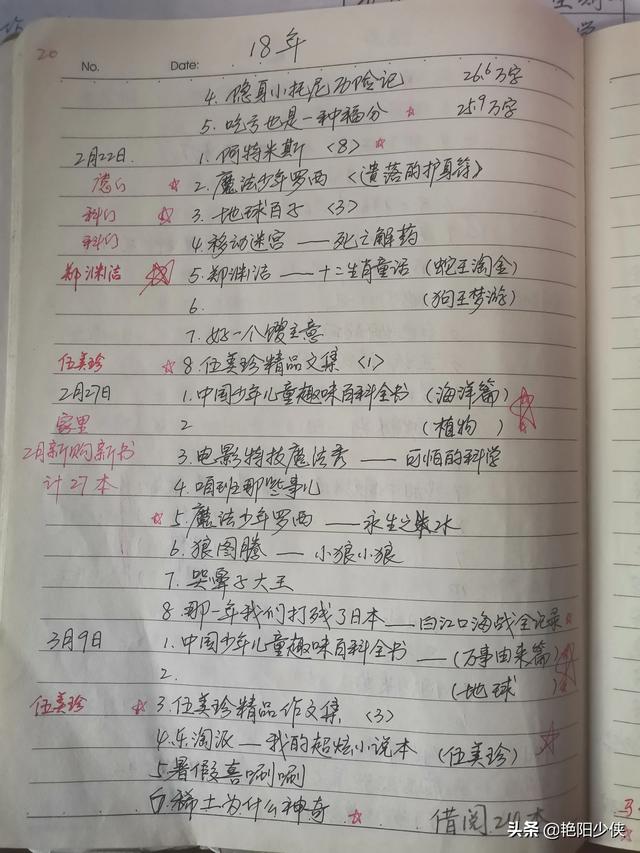 20 18年
No. Date:
4. 隐身小托尼历险记 26.6万字
5. 吃亏也是一种福分 ☆ 25.9万字
2月22日 1. 阿特米斯〈8〉☆
☆ 2. 魔法少年罗西〈遗落的护身符〉
科幻 ☆ 3. 地球百子〈3〉
科幻 4. 移动迷宫——死亡解药
郑渊洁 ☆ 5. 郑渊洁——十二生肖童话(蛇王淘金)
6. (狗王梦游)
7. 好一个馊主意
伍美珍 ☆ 8. 伍美珍精品文集〈1〉
2月27日 1. 中国少年儿童趣味百科全书(海洋篇) ☆
家里 2 (植物)
2月新购新书 3. 电影特技魔法秀——可怕的科学
计27本 4. 咱班那些事儿
☆ 5. 魔法少年罗西——永生之水
6. 狼图腾——小狼小狼
7. 哭鼻子大王
8. 那一年我们打残了日本——白江口海战全记录
3月9日 1. 中国少年儿童趣味百科全书——(万事由来篇)
2. (地球)
伍美珍 ☆ 3. 伍美珍精品作文集〈3〉
4. 乐淘派—我的超炫小说本(伍美珍) ☆
5 暑假喜唰唰
6. 稀土为什么神奇 ☆ 借阅 本
头条 @艳阳少侠